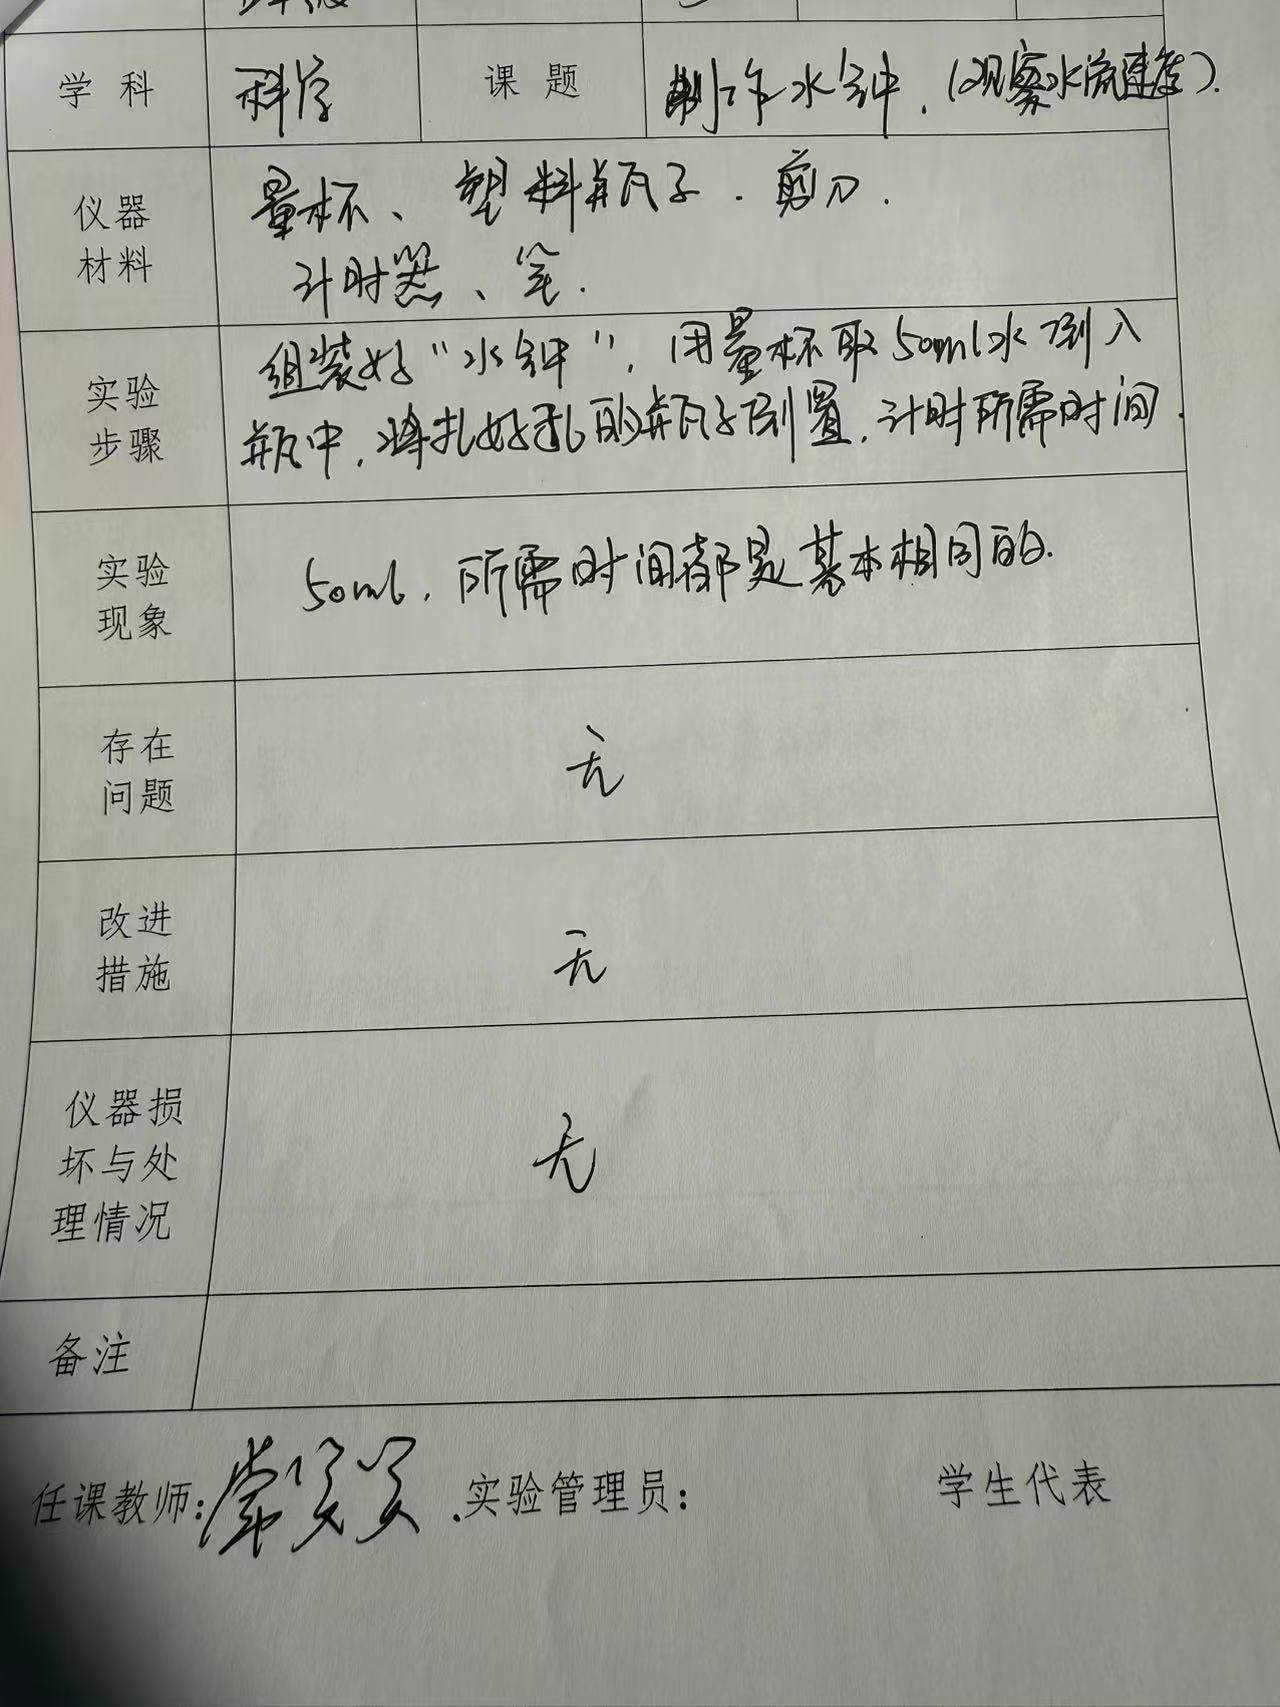 学科 科学 课题 制作水钟.(观察水流速度).
仪器
材料
量杯、塑料瓶子.剪刀.
计时器、笔.
实验
步骤
组装好“水钟”,用量杯取50ml水倒入
瓶中,将扎好孔的瓶子倒置,计时所需时间.
实验
现象
50ml,所需时间都是基本相同的.
存在
问题
无
改进
措施
无
仪器损
坏与处
理情况
无
备注
任课教师: 实验管理员: 学生代表